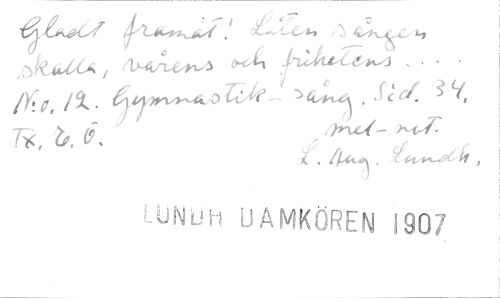 Gladt framåt! Låten sången
skalla, vårens och frihetens....
N:o. 12. Gymnastik-sång. Sid. 34.
Tx. E. Ö. mel-not.
L. Aug. Lundh.
LUNDH DAMKÖREN 1907